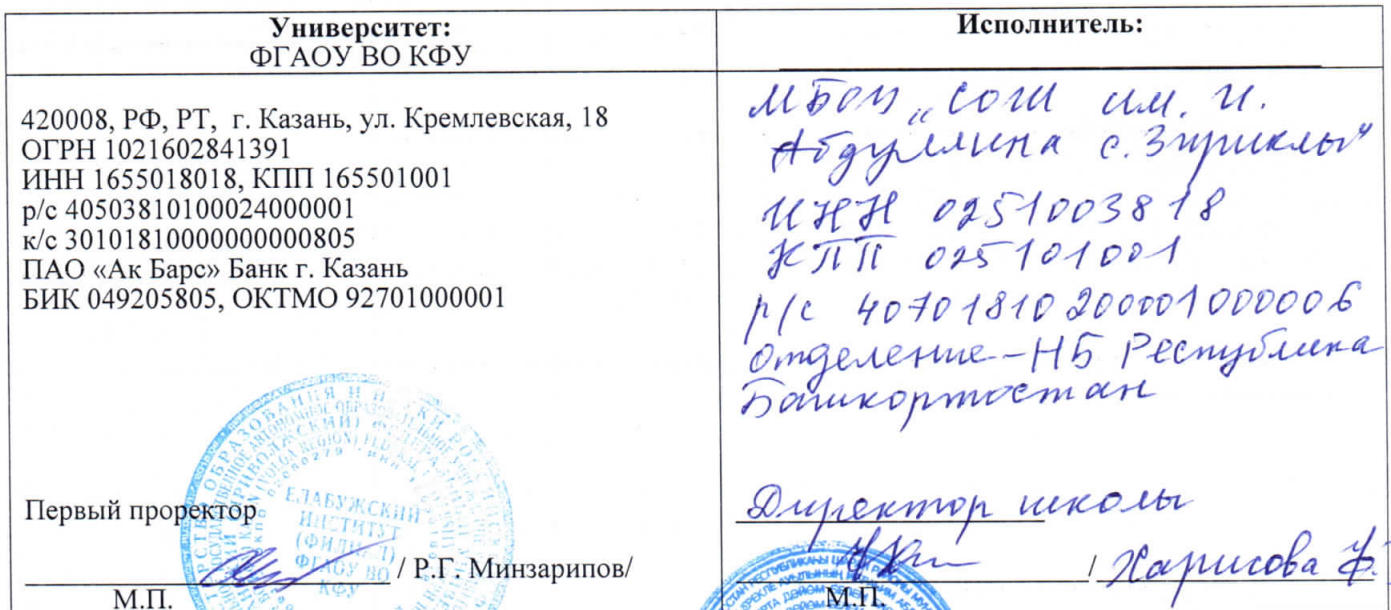 Университет:
ФГАОУ ВО КФУ
420008, РФ, РТ, г. Казань, ул. Кремлевская, 18
ОГРН 1021602841391
ИНН 1655018018, КПП 165501001
р/с 40503810100024000001
к/с 30101810000000000805
ПАО «Ак Барс» Банк г. Казань
БИК 049205805, ОКТМО 92701000001
Первый проректор
/ Р.Г. Минзарипов/
М.П.
ЕЛАБУЖСКИЙ
ИНСТИТУТ
(ФИЛИАЛ)
ФГАОУ ВО
КФУ
Исполнитель:
МБОУ „СОШ им. И.
Абдуллина с. Зириклы"
ИНН 0251003818
КПП 025101001
р/с 40701810200001000006
Отделение-НБ Республика
Башкортостан
Директор школы
/ Харисова
М.П.